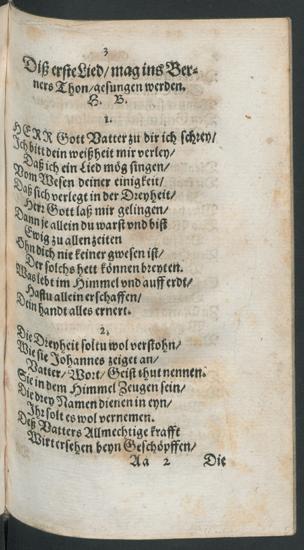 3
Diß erste Lied/ mag ins Ber-
ners Thon/ gesungen werden.
H. B.
1.
HERR Gott Vatter zu dir ich schrey/
Ich bitt dein weißheit mir verley/
Daß ich ein Lied mög singen/
Vom Wesen deiner einigkeit/
Daß sich verlegt in der Dreyheit/
Herr Gott laß mir gelingen/
Dann je allein du warst vnd bist
Ewig zu allen zeiten
Ohn dich nie keiner gwesen ist/
Der solchs hett können breyten.
Was lebt im Himmel vnd auff erdt/
Hastu allein erschaffen/
Dein handt alles ernert.
2.
Die Dreyheit soltu wol verstohn/
Wie sie Johannes zeiget an/
Vatter/ Wort/ Geist thut nennen.
Sie in dem Himmel Zeugen sein/
Die drey Namen dienen in eyn/
Ihr solt es wol vernemen.
Deß Vatters Allmechtige krafft
Wirt ersehen beyn Geschöpffen/
Aa 2 Die